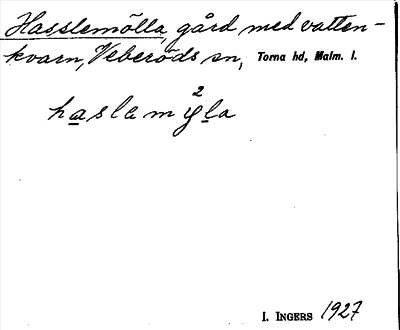 Hasslemölla, gård med vatten-
kvarn, Veberöds sn, Torna hd, Malm. l.
2
I. INGERS 1927